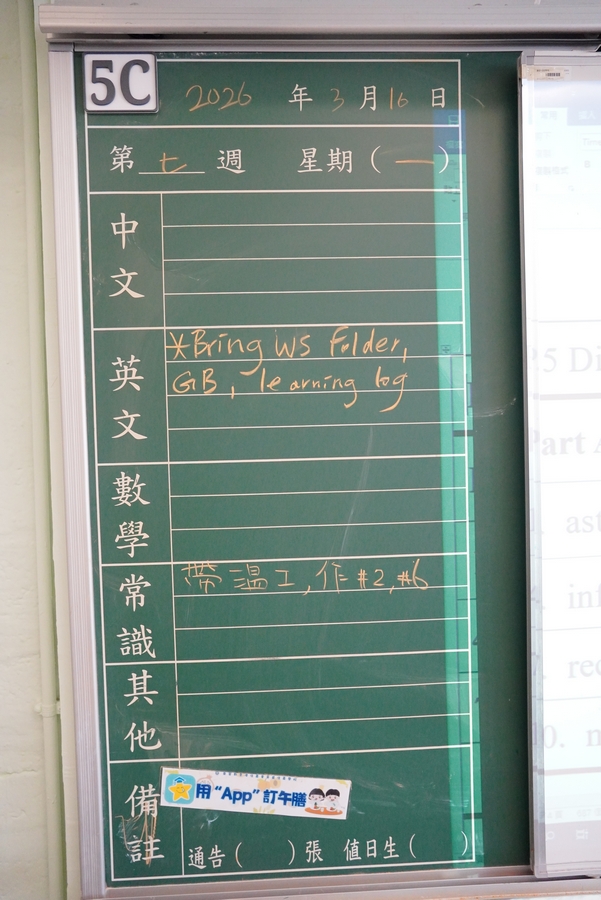 5C
2026 年 3 月 16 日
第 七 週 星期 ( 一 )
中文
英文
*Bring WS Folder,
GB, learning log
數學
常識
帶溫工, 作#2, #6
其他
備註
用“App”訂午膳
通告 ( ) 張 值日生 ( )
5 Di
Part A
ast
inf
rec
0. n